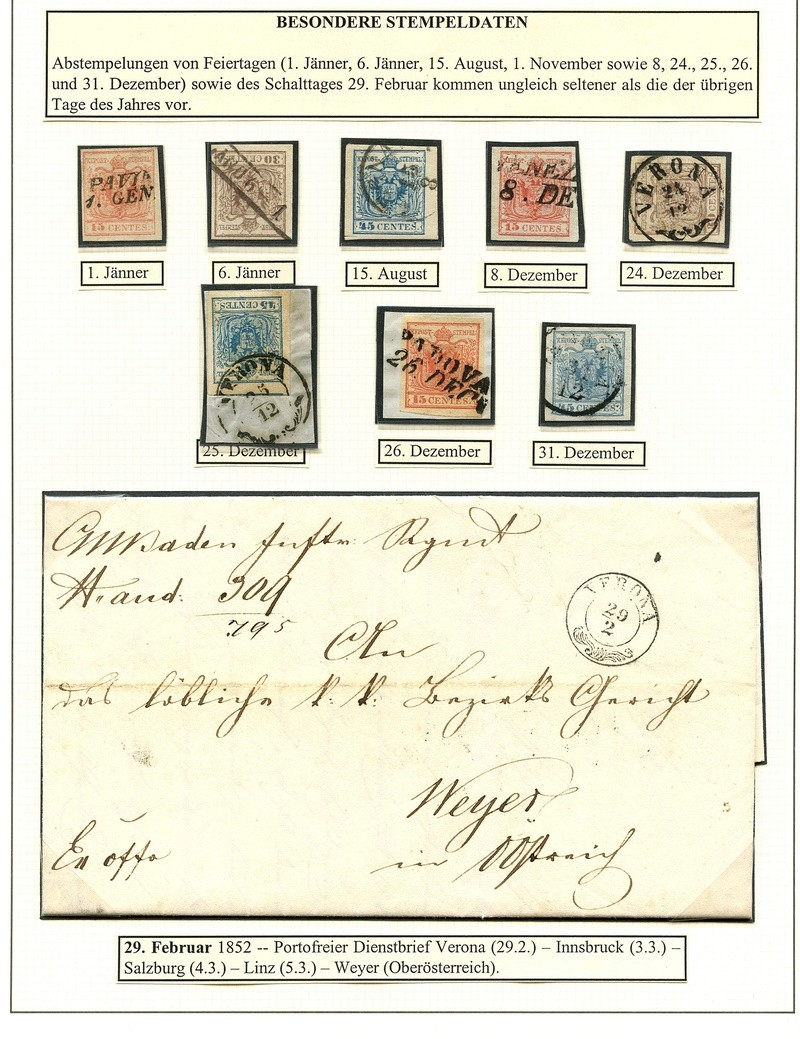 BESONDERE STEMPELDATEN
Abstempelungen von Feiertagen (1. Jänner, 6. Jänner, 15. August, 1. November sowie 8, 24., 25., 26.
und 31. Dezember) sowie des Schalttages 29. Februar kommen ungleich seltener als die der übrigen
Tage des Jahres vor.
PAVIA
1. GEN.
15 CENTES.
30
45 CENTES.
8. DE
15 CENTES.
VERONA
24
12
1. Jänner
6. Jänner
15. August
8. Dezember
24. Dezember
45 CENTES.
VERONA
25
12
PADOVA
26. DEC.
15 CENTES.
12
45 CENTES.
25. Dezember
26. Dezember
31. Dezember
309
795
VERONA
29
2
An
das löbliche k. k. Bezirks Gericht
Weyer
Ex offo
in OÖstreich
29. Februar 1852 -- Portofreier Dienstbrief Verona (29.2.) – Innsbruck (3.3.) –
Salzburg (4.3.) – Linz (5.3.) – Weyer (Oberösterreich).